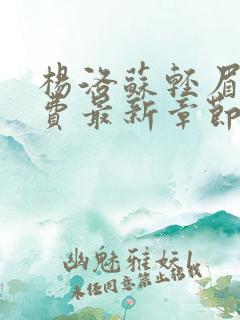 楊洛蘇輕眉
費最新章節
幽魅雅妘L
未经同意禁止转载